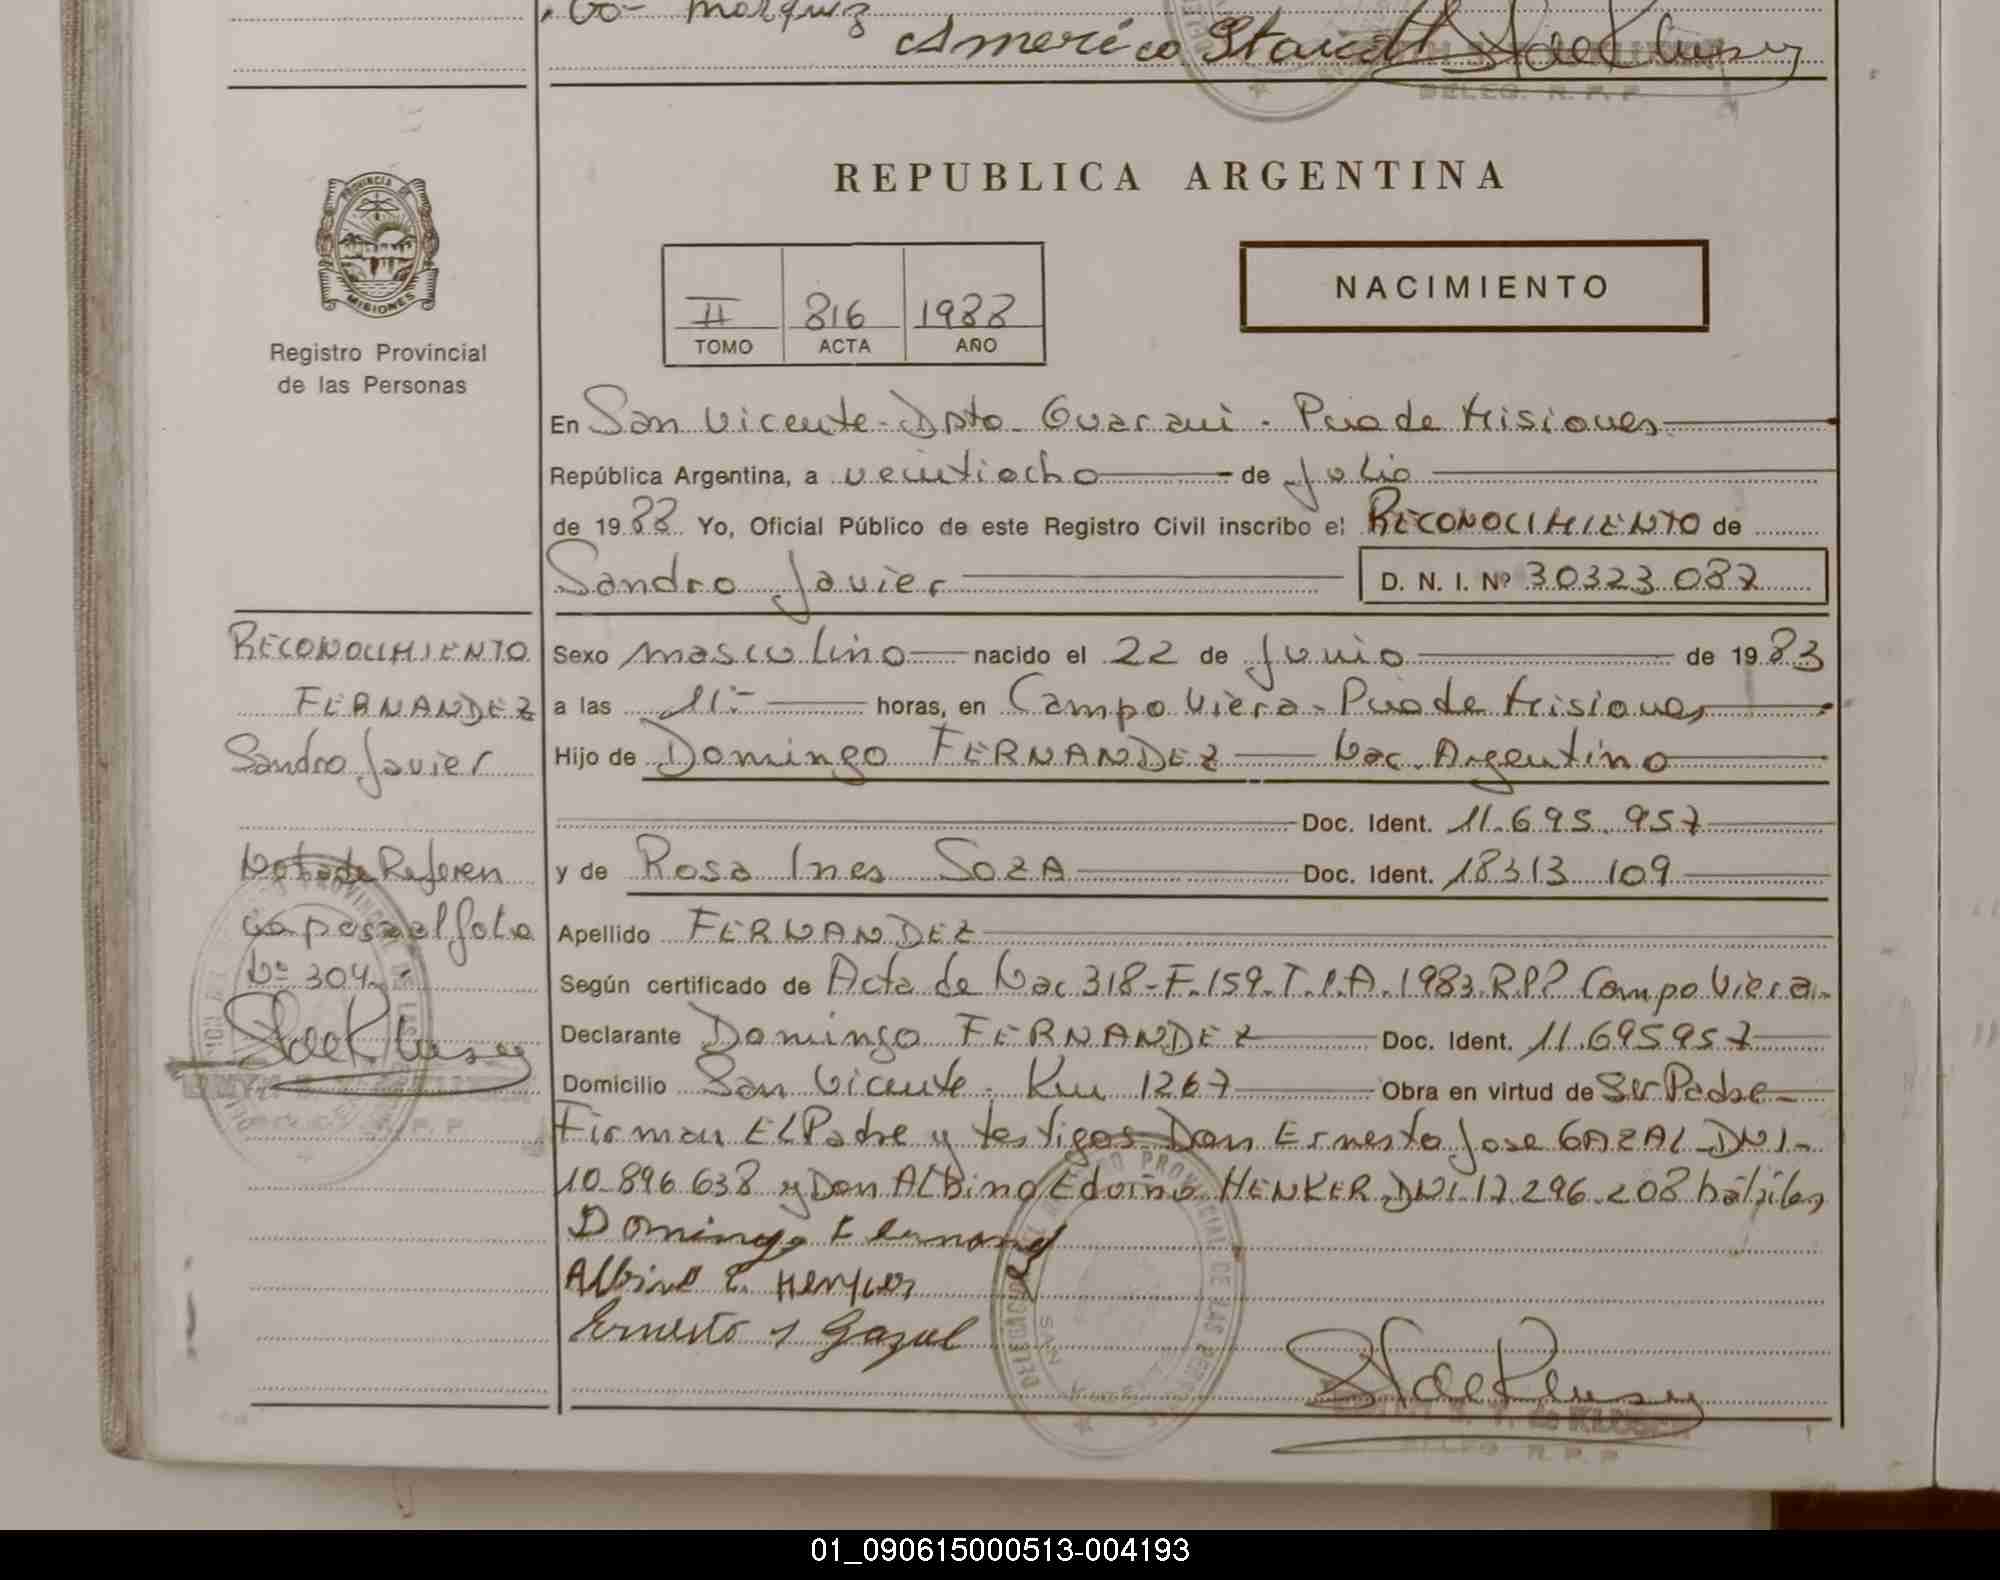 Americo
DELEG. R. P. P.
REPUBLICA ARGENTINA
PROVINCIA DE
MISIONES
Registro Provincial
de las Personas
NACIMIENTO
II 816 1988
TOMO ACTA AÑO
En San Vicente - Dpto Guarani - Pcia de Misiones
República Argentina, a veintiocho de Julio
de 1988 Yo, Oficial Público de este Registro Civil inscribo el RECONOCIMIENTO de
Sandro Javier D. N. I. Nº 30323.087
RECONOCIMIENTO
FERNANDEZ
Sandro Javier
Sexo masculino nacido el 22 de Junio de 1983
a las 11:- horas, en Campo Viera - Pcia de Misiones
Hijo de Domingo FERNANDEZ Nac. Argentino
Doc. Ident. 11.695.957
y de Rosa Ines SOZA Doc. Ident. 18313 109
Nota de Referen
cia pasa al folio
Nº 304
Apellido FERNANDEZ
Según certificado de Acta de Nac 318-F.159-T.I.A.1983.R.P.P Campo Viera.
Declarante Domingo FERNANDEZ Doc. Ident. 11.695957
Domicilio San Vicente. Km 1267 Obra en virtud de Ser Padre
Firman El Padre y testigos Don Ernesto Jose GAZAL - DNI-
10.896.638 y Don Albino Edvino HENKER DNI 17.296.208 hábiles
Domingo Fernandez
Albino E. Henker
Ernesto J Gazal
DELEGACION REGISTRO PROVINCIAL DE LAS PERSONAS
SAN VICENTE
de KLUSEN
DELEG R. P. P
01_090615000513-004193